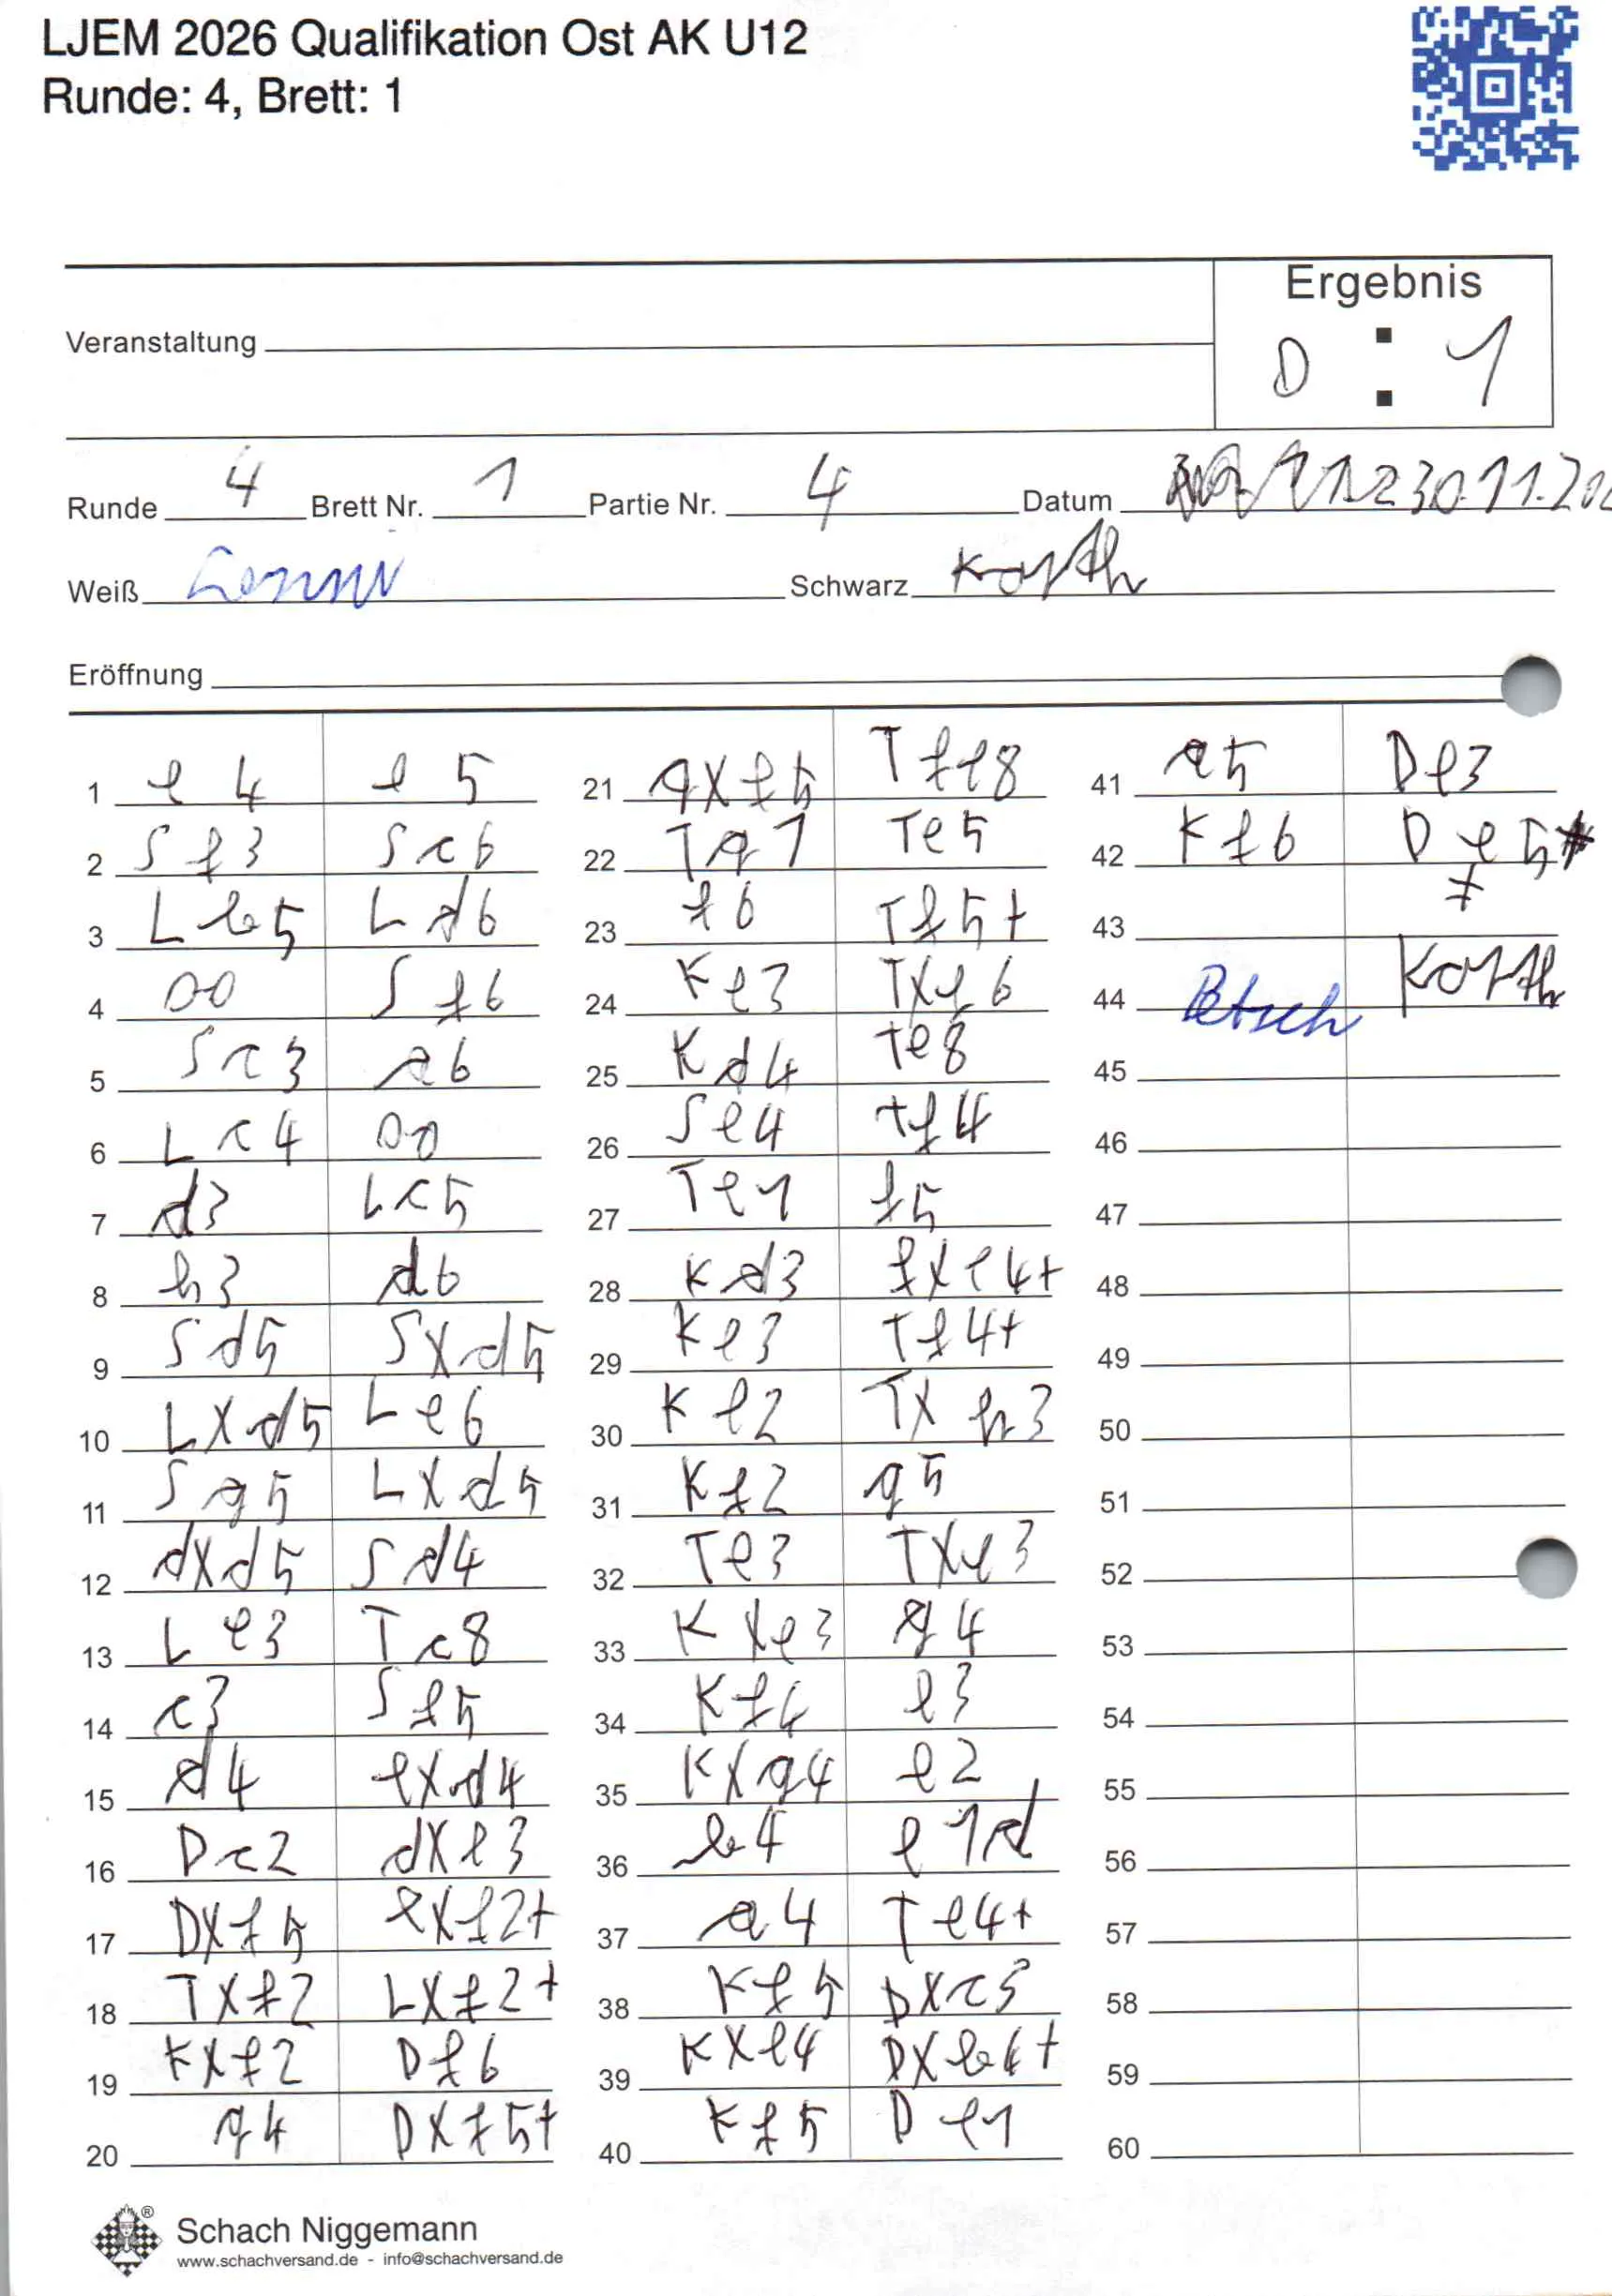 LJEM 2026 Qualifikation Ost AK U12
Runde: 4, Brett: 1
Ergebnis
Veranstaltung
0 : 1
Runde 4 Brett Nr. 1 Partie Nr. 4 Datum 30.11.202
Weiß Schwarz Korth
Eröffnung
1 e4 e5
2 Sf3 Sc6
3 Lb5 Ld6
4 00 Sf6
5 Sc3 a6
6 Lc4 00
7 d3 Lc5
8 h3 d6
9 Sd5 Sxd5
10 Lxd5 Le6
11 Sg5 Lxd5
12 dxd5 Sd4
13 Le3 Tc8
14 c3 Sf5
15 d4 exd4
16 Dc2 dxe3
17 Dxf5 exf2+
18 Txf2 Lxf2+
19 Kxf2 Df6
20 g4 Dxf5+
21 gxf5 Tfe8
22 Tg1 Te5
23 f6 Tf5+
24 Ke3 Txf6
25 Kd4 te8
26 Se4 tf4
27 Te1 f5
28 Kd3 fxe4+
29 Ke3 Tf4+
30 Ke2 Txh3
31 Kf2 g5
32 Te3 Txe3
33 Kxe3 g4
34 Kf4 e3
35 Kxg4 e2
36 b4 e1d
37 a4 Te4+
38 Kf5 Dxc3
39 Kxe4 Dxb4+
40 Kf5 De1
41 a5 De3
42 Kf6 De5#
43
44 Petsch Korth
45
46
47
48
49
50
51
52
53
54
55
56
57
58
59
60
Schach Niggemann
www.schachversand.de - info@schachversand.de